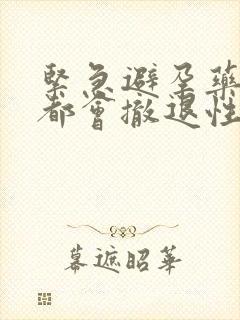 緊急避孕藥
都會撤退性
幕遮昭華